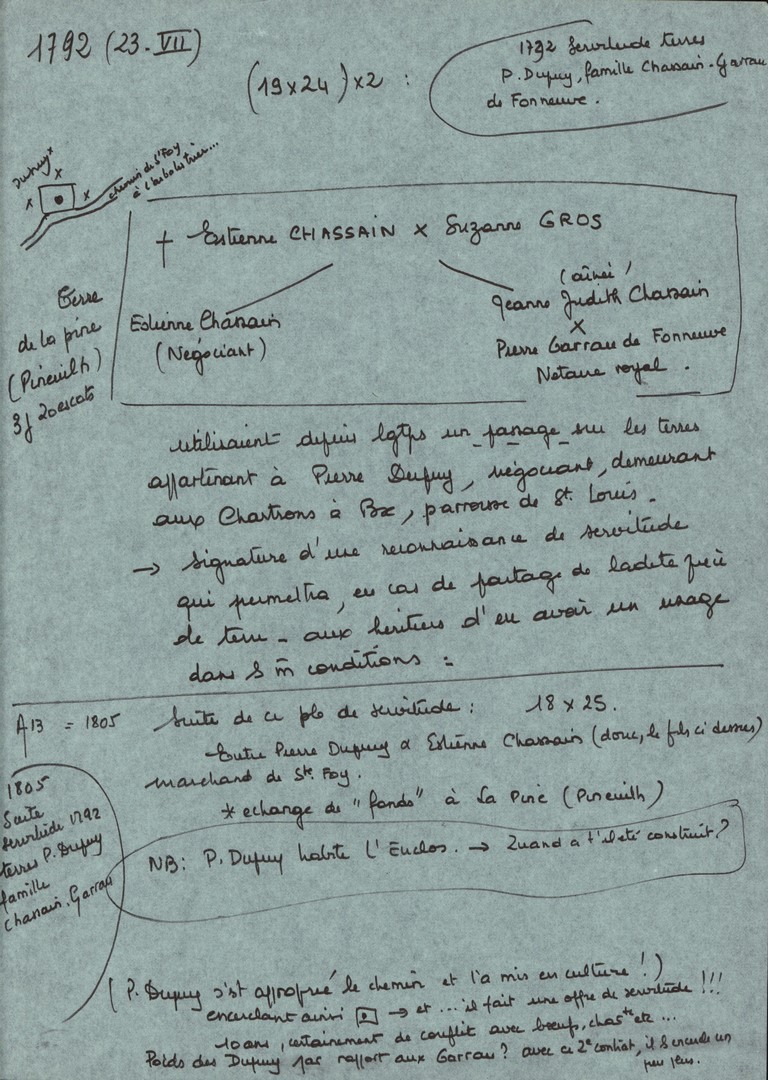 1792 (23. VII)
(19 x 24) x 2 :
1792 Servitude terres
P. Dupuy, famille Chassain-Garrau
de Fonneuve.
Dupuy
chemin de St Foy
à l'arbalétrier...
† Estienne CHASSAIN x Suzanne GROS
Estienne Chassain
(Négociant)
(aînée)
Jeanne Judith Chassain
x
Pierre Garrau de Fonneuve
Notaire royal.
Terre
de la pine
(Pineuilh)
3j 20 escats
utilisaient depuis lgtps un passage sur les terres
appartenant à Pierre Dupuy, négociant, demeurant
aux Chartrons à Bx, parroisse de St. Louis.
→ signature d'une reconnaissance de servitude
qui permettra, en cas de partage de ladite pièce
de terre - aux héritiers d'en avoir un usage
dans s m̂ conditions =
A13 = 1805 Suite de ce pb de servitude : 18 x 25.
Entre Pierre Dupuy & Estienne Chassain (donc, le fils ci dessus)
marchand de Ste Foy.
* echange de "fonds" à La Pine (Pineuilh)
1805
Suite
servitude 1792
terres P. Dupuy
famille
Chassain. Garrau
NB: P. Dupuy habite l'Enclos. → Quand a t'il été construit ?
(P. Dupuy s'est approprié le chemin et l'a mis en culture !)
encerclant ainsi → et ... il fait une offre de servitude !!!
10 ans, certainement de conflit avec boeufs, chastte etc ...
Poids des Dupuy par rapport aux Garrau ? avec ce 2e contrat, il s
un
peu plus.